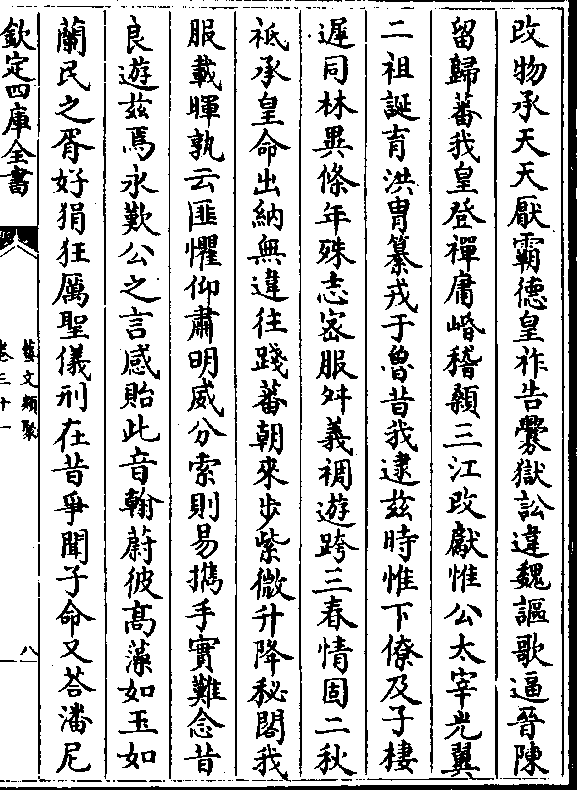 改物承天天厭霸德皇祚告釁獄訟違魏謳歌適晉陳
留歸蕃我皇登禪庸岷稽顙三江改獻惟公太宰光翼
二祖誕育洪胄纂戎于魯昔我逮兹時惟下僚及子棲
遲同林異條年殊志宻服舛義稠遊跨三春情固二秋
祇承皇命出納無違往踐蕃朝來步紫微升降秘閣我
服載暉孰云匪懼仰肅明威分索則易攜手實難念昔
良遊兹焉永歎公之言感貽此音翰蔚彼髙藻如玉如
蘭民之胥好狷狂厲聖儀刑在昔爭聞子命又荅潘尼
欽定四庫全書
藝文類聚
卷三十一
八